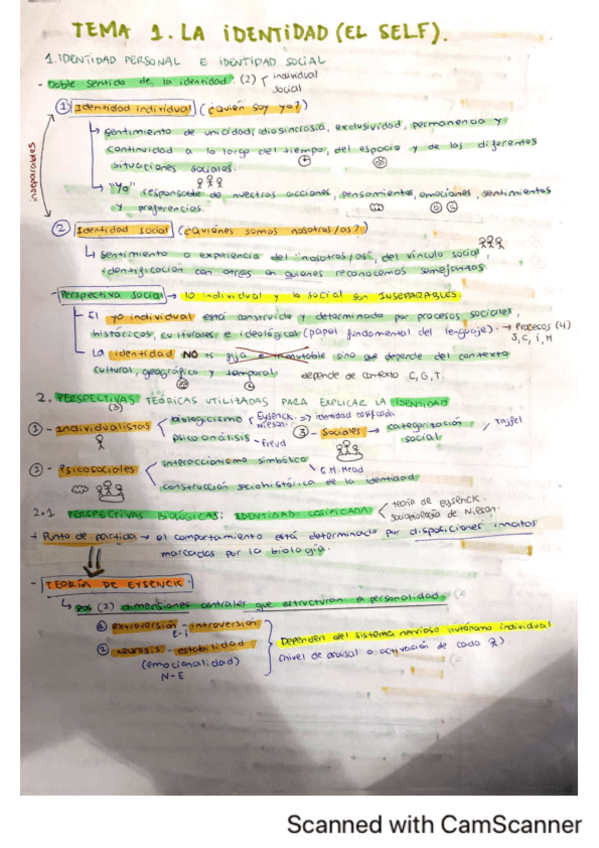 TEMA 1. LA IDENTIDAD (EL SELF).
1. IDENTIDAD PERSONAL E IDENTIDAD SOCIAL
- Doble sentido de la identidad: (2) individual
social
① Identidad individual (¿Quién soy yo?)
↳ Sentimiento de unicidad, idiosincrasia, exclusividad, permanencia y
continuidad a lo largo del tiempo, del espacio y de las diferentes
situaciones sociales.
↳ "Yo" responsable de nuestras acciones, pensamientos, emociones, sentimientos
y preferencias.
inseparables
② Identidad social (¿Quiénes somos nosotros/as?)
↳ Sentimiento o experiencia del "nosotros/as", del vínculo social,
identificación con otros en quienes reconocemos semejantes.
- Perspectiva social → lo individual y lo social son INSEPARABLES.
- El yo individual está construido y determinado por procesos sociales,
históricos, culturales e ideológicos (papel fundamental del lenguaje). → Procesos (4)
S, C, I, H
- La identidad NO es fija e inmutable sino que depende del contexto
cultural, geográfico y temporal. depende de contexto C, G, T.
2. PERSPECTIVAS TEÓRICAS UTILIZADAS PARA EXPLICAR LA IDENTIDAD
(3)
① - Individualistas biologicismo Eysenck
=> identidad cosificada
psicoanálisis - Freud
③ - Sociales → categorización social / Tajfel
② - Psicosociales interaccionismo simbólico
G. H. Mead
construcción sociohistórica de la identidad
2.1 PERSPECTIVAS BIOLÓGICAS: IDENTIDAD COSIFICADA teoría de EYSENCK.
sociobiología de
→ Punto de partida → el comportamiento está determinado por disposiciones innatas
marcadas por la biología.
- TEORÍA DE EYSENCK.
↳ Dos (2) dimensiones centrales que estructuran la personalidad:
① extroversión - introversión
E - i
② neurosis - estabilidad
(emocionalidad)
N - E
Dependen del sistema nervioso autónomo individual
(nivel de arousal o activación de cada)
Scanned with CamScanner